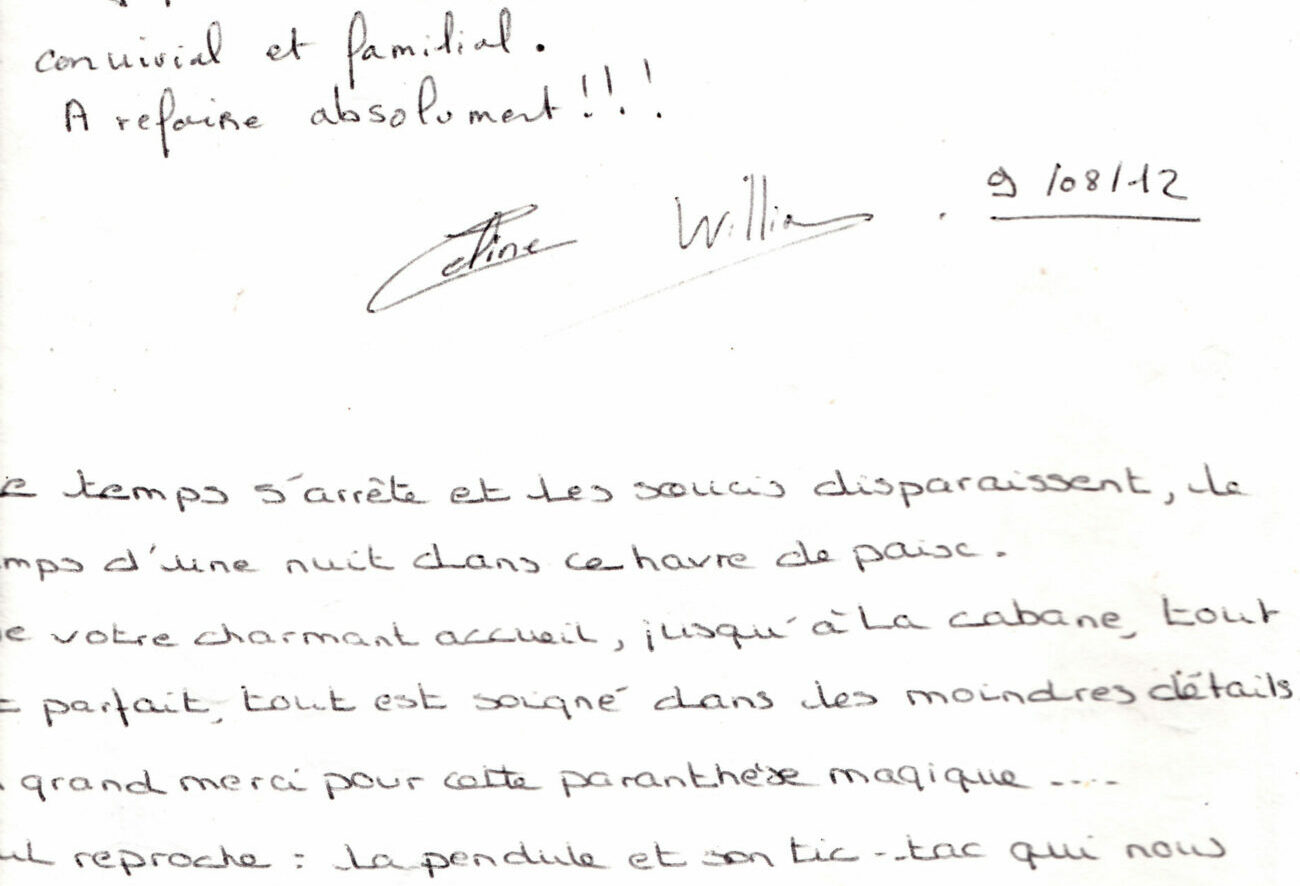 convivial et familial.
A refaire absolument!!!
Celine William . 9/08/12
e temps s'arrête et les soucis disparaissent, le
mps d'une nuit dans ce havre de paix.
e votre charmant accueil, jusqu'à la cabane, tout
t parfait, tout est soigné dans les moindres détails
grand merci pour cette paranthèse magique ....
ul reproche : la pendule et son tic-tac qui nous